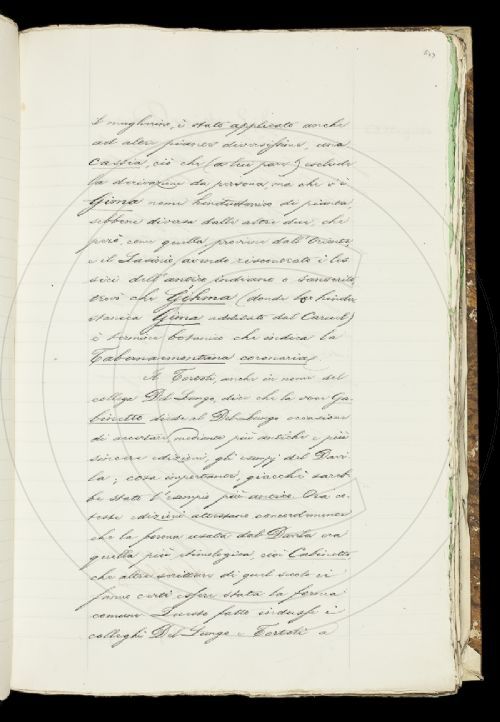 è stato applicato anche
ad altre piante diversissime, una
Cassia, ciò che (a tuo pare?) esclude
la derivazione da persona, ma che v'è
Gima nome hindustanico di pianta,
sebbene diversa dalle altre due, che
però, come quella proviene dall'Oriente
e il Lasinio, avendo riscontrato i les-
sici dell'antico indiano o sanscrito,
trovò che Gihma (donde
Gima additato dal Caruel)
è termine botanico che indica la
Tabernaemontana coronaria.
Il Tortoli, anche in nome del
collega Del Lungo, dice che la voce Ga-
binetto diede al Del Lungo occasione
di accertare mediante più antiche e più
sincere edizioni, gli esempj del Davi-
la; cosa importante, giacchè sareb-
be stato l'esempio più antico. Ora co-
teste edizioni attestano concordemente
che la forma usata dal Davila era
quella più etimologica, cioè Cabinetto
che altri scrittori di quel secolo ci
fanno certi essere stata la forma
comune. Questo fatto indusse i
colleghi Del Lungo e Tortoli a